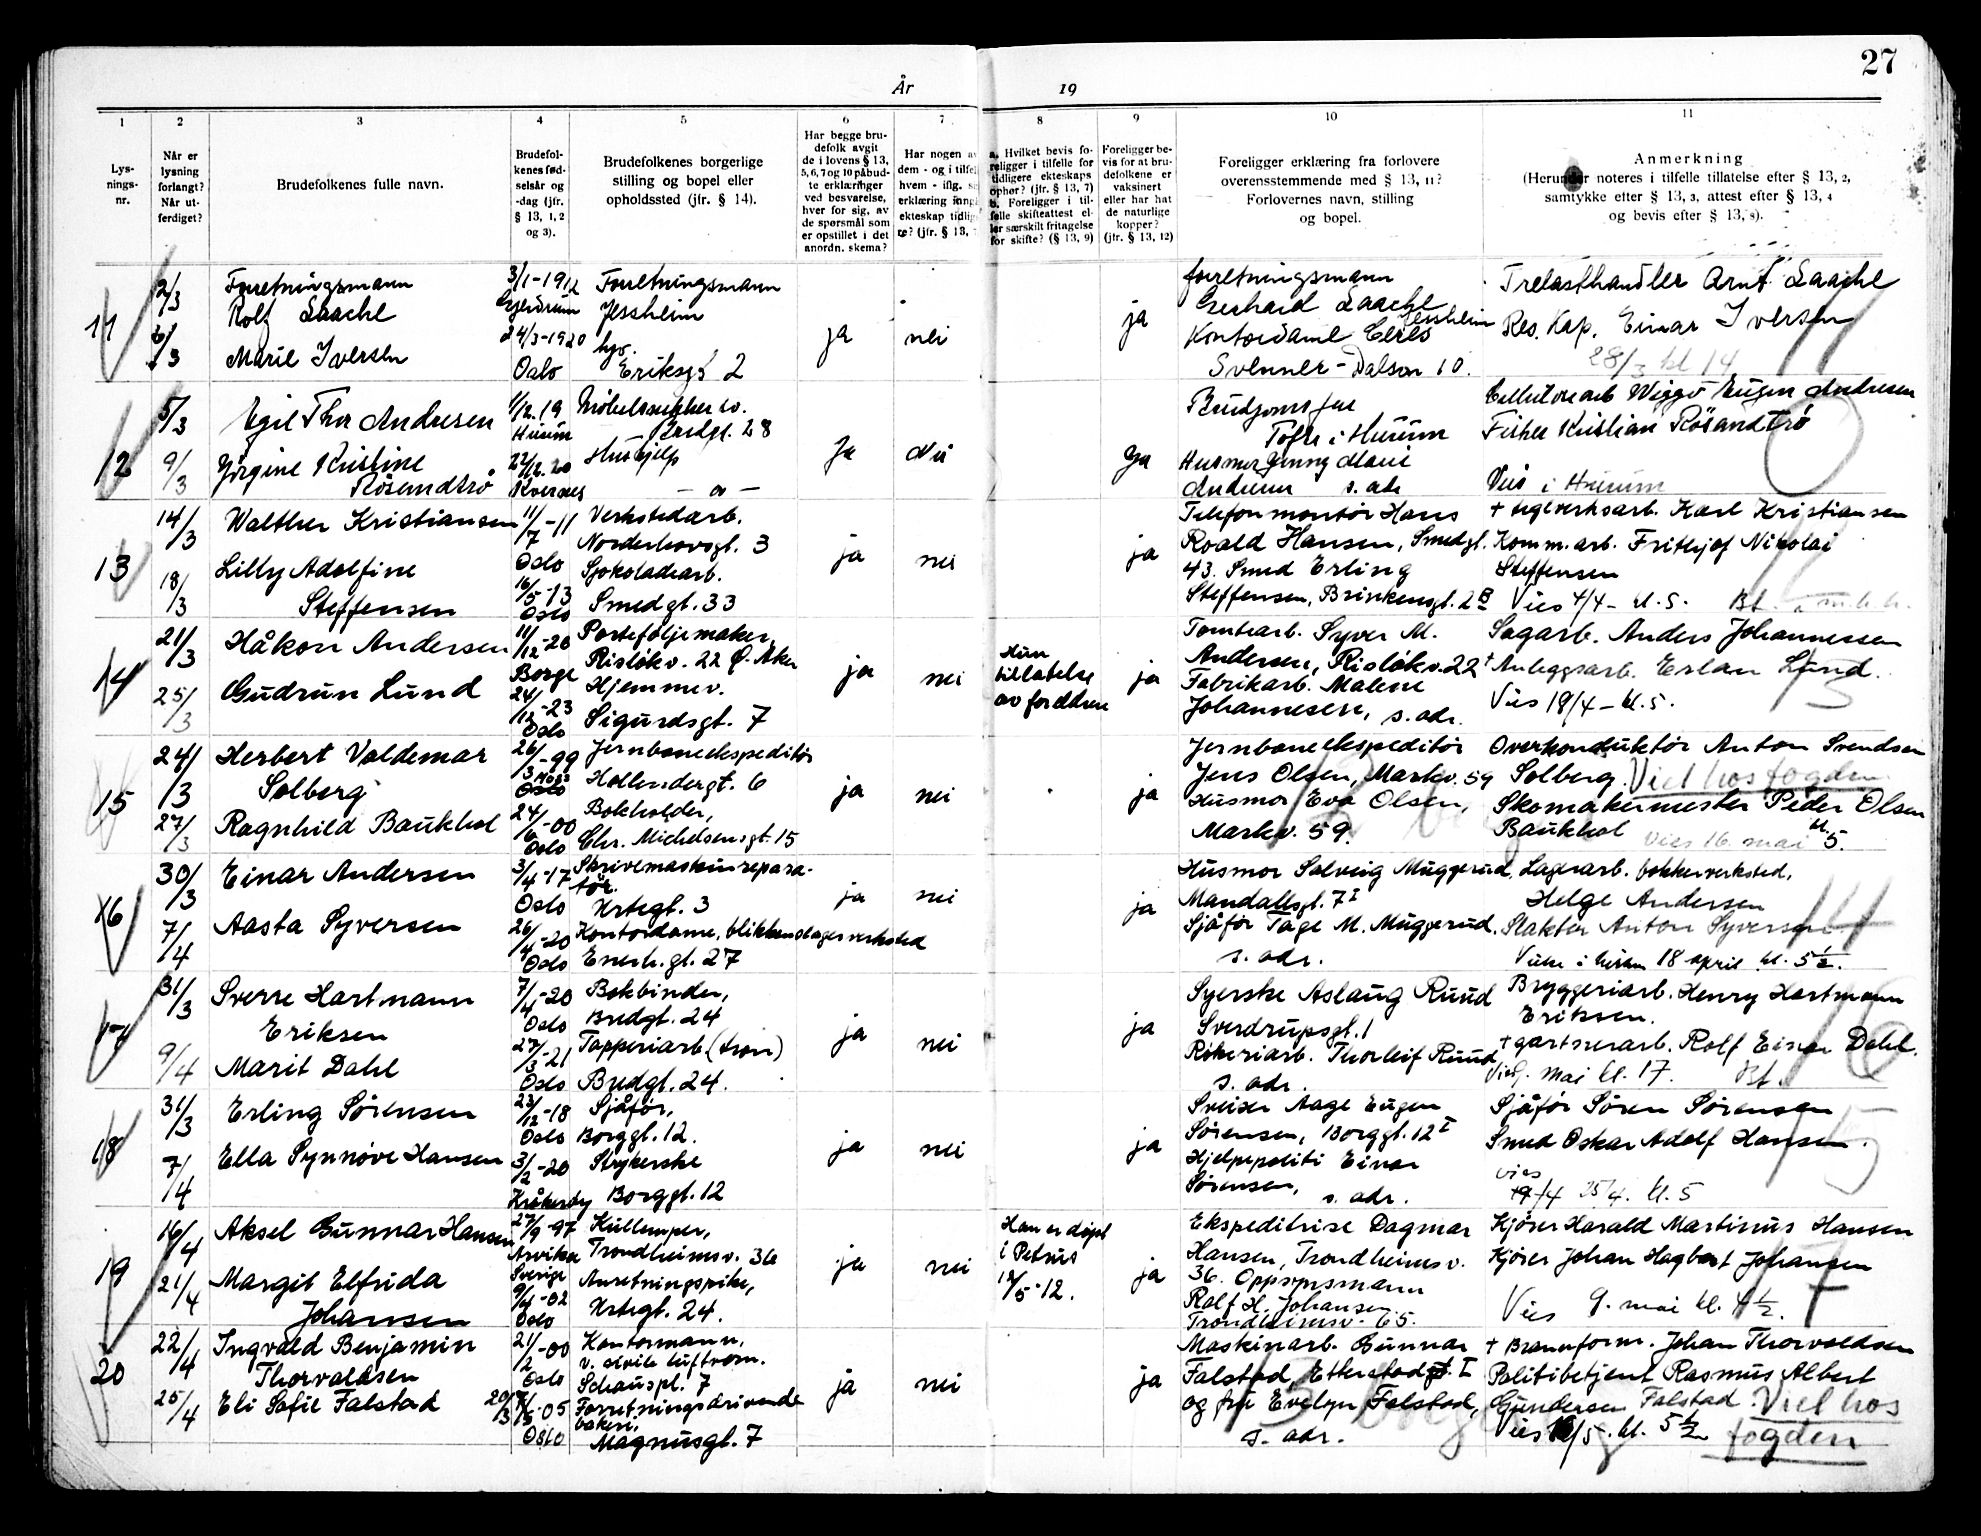 27
År 19
1 2 3 4 5 6 7 8 9 10 11
Lys-
nings-
nr.
Når er
lysning
forlangt?
Når ut-
ferdiget?
Brudefolkenes fulle navn.
Brudefol-
kenes fød-
selsår og
-dag (jfr.
§ 13, 1, 2
og 3).
Brudefolkenes borgerlige
stilling og bopel eller
opholdssted (jfr. § 14).
Har begge bru-
defolk avgit
de i lovens § 13,
5, 6, 7 og 10 påbud-
te erklæringer
ved besvarelse,
hver for sig, av
de spørsmål som
er opstillet i det
anordn. skema?
Har nogen av
dem - og i tilfel
hvem - iflg. si
erklæring inngå
ekteskap tidlig
re? (jfr. § 13,
a. Hvilket bevis fo-
religger i tilfelle for
tidligere ekteskaps
ophør? (jfr. § 13, 7)
b. Foreligger i til-
felle skifteattest el-
ler særskilt fritagelse
for skifte? (§ 13, 9)
Foreligger be-
vis for at bru-
defolkene er
vaksinert
eller har hat
de naturlige
kopper?
(jfr. § 13, 12)
Foreligger erklæring fra forlovere
overensstemmende med § 13, 11?
Forlovernes navn, stilling
og bopel.
Anmerkning
(Herunder noteres i tilfelle tillatelse efter § 13, 2,
samtykke efter § 13, 3, attest efter § 13, 4
og bevis efter § 13, 8).
11
2/3
6/3
Forretningsmann
Rolf Laache
Marie Iversen
3/1-1912
Gjerdrum
24/3-1920
Oslo
Forretningsmann
Jessheim
Eriksgt 2
ja
nei
ja
forretningsmann
Gerhard Laache
Jessheim
Kontordame
Svenner-Dalson 10.
Trelasthandler Arnt Laache
Res. Kap. Einar Iversen
28/3 kl 14
12
5/3
9/3
Egil Thor Andresen
Jørgine Kristine
Røsandtrø
1/12.19
Hurum
22/12.20
Kvernes
Møbelsnekker
Bredgt. 28
Hushjelp
— a —
Ja
Nei
Ja
Brudgoms far
Tofte i Hurum
Husmor Jenny Marie
Andresen s. adr
Cellulosearb Wiggo Eugen Andresen
Fisker Kristian Røsandtrø
Vies i Hurum
13
14/3
18/3
Walther Kristiansen
Lilly Adolfine
Steffensen
11/7-11
Oslo
16/5-13
Oslo
Verkstedarb.
Norderhovsgt. 3
Sjokoladearb.
Smedgt. 33
ja
nei
ja
Telefonmontør Hans
Roald Hansen, Smedgt.
43. Smed Erling
Steffensen, Brinkensgt. 2B
+ teglverksarb. Karl Kristiansen
Komm.arb. Frithjof Nikolai
Steffensen
Vies 4/4 - kl. 5. Bt.
14
21/3
25/3
Håkon Andersen
Gudrun Lund
11/12-20
Borge
24/12-23
Oslo
Porteføljemaker,
Risløkv. 22 Ø. Aker
Hjemmev.
Sigurdsgt. 7
ja
nei
Hun
tillatelse
av foreldrene
ja
Tomtearb. Syver M.
Andersen, Risløkv. 22
Fabrikarb. Malene
Johannesen, s. adr.
Sagarb. Anders Johannessen
+ Anleggsarb. Erlan Lund.
Vies 18/4 - kl. 5.
15
24/3
27/3
Herbert Valdemar
Solberg
Ragnhild Baukhol
26/3-99
Moss
Oslo
24/6-00
Oslo
Jernbaneekspeditør
Hollendergt. 6
Bokholder,
Chr. Michelsensgt. 15
ja
nei
ja
Jernbaneekspeditør
Jens Olsen, Markv. 59
Husmor Eva Olsen,
Markv. 59.
Overkonduktør Anton Svendsen
Solberg. Viet hos fogden
Skomakermester Peder Olsen
Baukhol Vies 16. mai kl. 5.
16
30/3
7/4
Einar Andersen
Aasta Syversen
3/4-17
Oslo
26/4-20
Oslo
Skrivemaskinrepara-
tør.
Urtegt. 3
Kontordame, blikkenslagerverksted
Enerh.gt. 27
ja
nei
ja
Husmor Solveig Muggerud,
Mandallsgt. 7 I
Sjåfør Tage M. Muggerud,
s. adr.
Lagerarb. bokkerverksted,
Helge Andersen
Slakter Anton Syversen
Vies i kirken 18 april kl. 5 1/2.
17
31/3
9/4
Sverre Hartmann
Eriksen
Marit Dahl
7/4-20
Oslo
27/3-21
Oslo
Bokbinder,
Bredgt. 24
Tapperiarb.
Bredgt. 24.
ja
nei
ja
Syerske Aslaug Ruud
Sverdrupsgt. 1
Rikeriarb. Thorleif Ruud
s. adr.
Bryggeriarb. Henry Hartmann
Eriksen.
+ gartnerarb. Rolf Einar Dahl.
mai kl. 17. Bt.
18
31/3
7/4
Erling Sørensen
Ella Synnøve Hansen
23/12-18
Oslo
3/2-20
Kråkerøy
Sjåfør,
Borggt. 12.
Strykerske
Borggt. 12
ja
nei
ja
Sveiser Aage Eugen
Sørensen, Borggt. 12 I
Hjelpepoliti Einar
Sørensen, s. adr.
Sjåfør Søren Sørensen
Smed Oskar Adolf Hansen.
vies
19/4 25/4. kl. 5
19
16/4
21/4
Aksel Gunnar Hansen
Margit Elfrida
Johansen
27/9-97
Arvika
Sverige
9/4-02
Oslo
Kullemper,
Trondheimsv. 36
Anretningspike,
Urtegt. 24.
ja
nei
Han er døpt
i Petrus
12/5-12.
ja
Ekspeditrise Dagmar
Hansen, Trondheimsv.
36. Oppsynsmann
Rolf H. Johansen
Trondheimsv. 65.
Kjører Harald Martinus Hansen
Kjører Johan Hagbart Johansen
Vies 9. mai kl. 4 1/2.
20
22/4
25/4
Ingvald Benjamin
Thorvaldsen
Eli Sofie Falstad
21/2-00
Oslo
Oslo
Kontormann,
v. sivile luftvern.
Schouspl. 7
Forretningsdrivende
bakeri,
Magnusgt. 7
ja
nei
ja
Maskinarb. Gunnar
Falstad, Etterstadgt. I
og fru Evelyn Falstad,
s. adr.
+ Brannform. Johan Thorvaldsen
Politibetjent Rasmus Albert
Gundersen Falstad. Viet hos
fogden
Vies /5. kl. 5 1/2